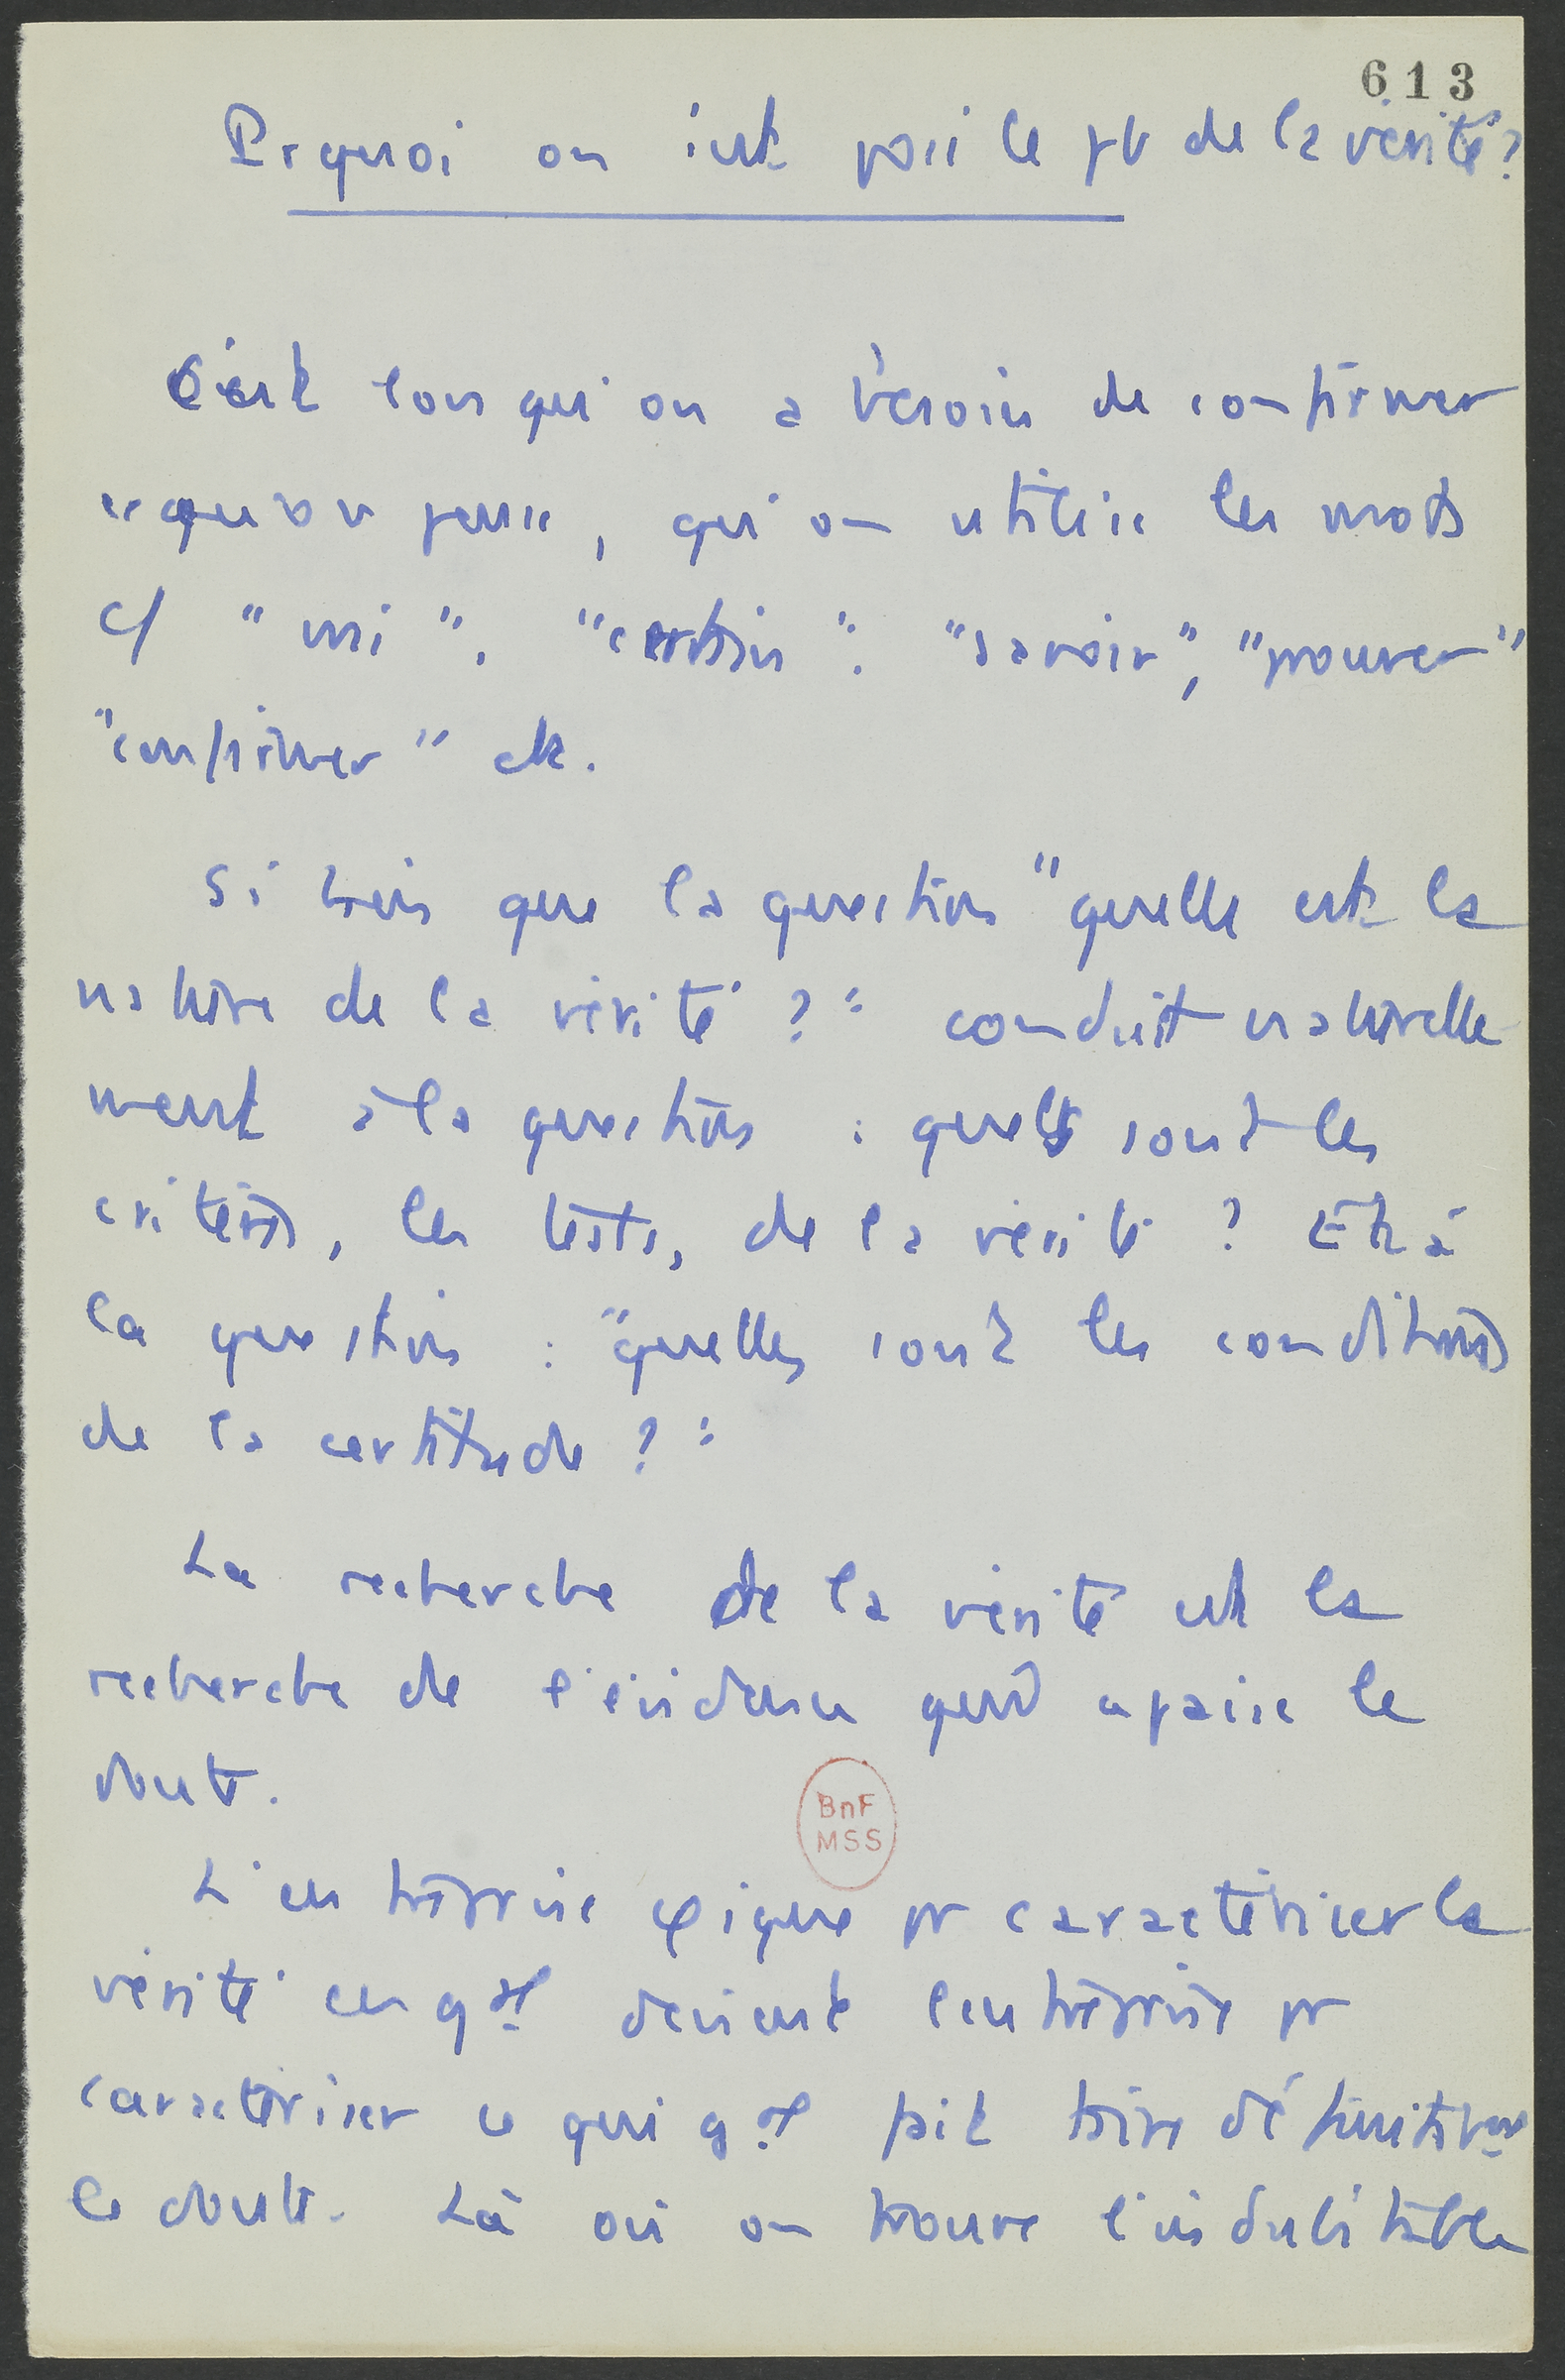 613
Prquoi on s'est posé le pb de la vérité?
C'est lorsqu'on a besoin de confirmer
ce qu'on pense, qu'on utilise les mots
c/ "vrai", "certain", "savoir", "prouver"
"confirmer" etc.
Si bien que la question "quelle est la
nature de la vérité ?" conduit naturelle
ment à la question : quels sont les
critères, les tests, de la vérité ? Et à
la question : "quelles sont les conditions
de la certitude ?"
La recherche de la vérité est la
recherche de l'évidence qui apaise le
doute.
L'entreprise φique pr caractériser la
vérité en gal devient l'entreprise pr
caractériser ce qui gal fait taire définitivmt
le doute. Là où on trouve l'indubitable
BnF
MSS